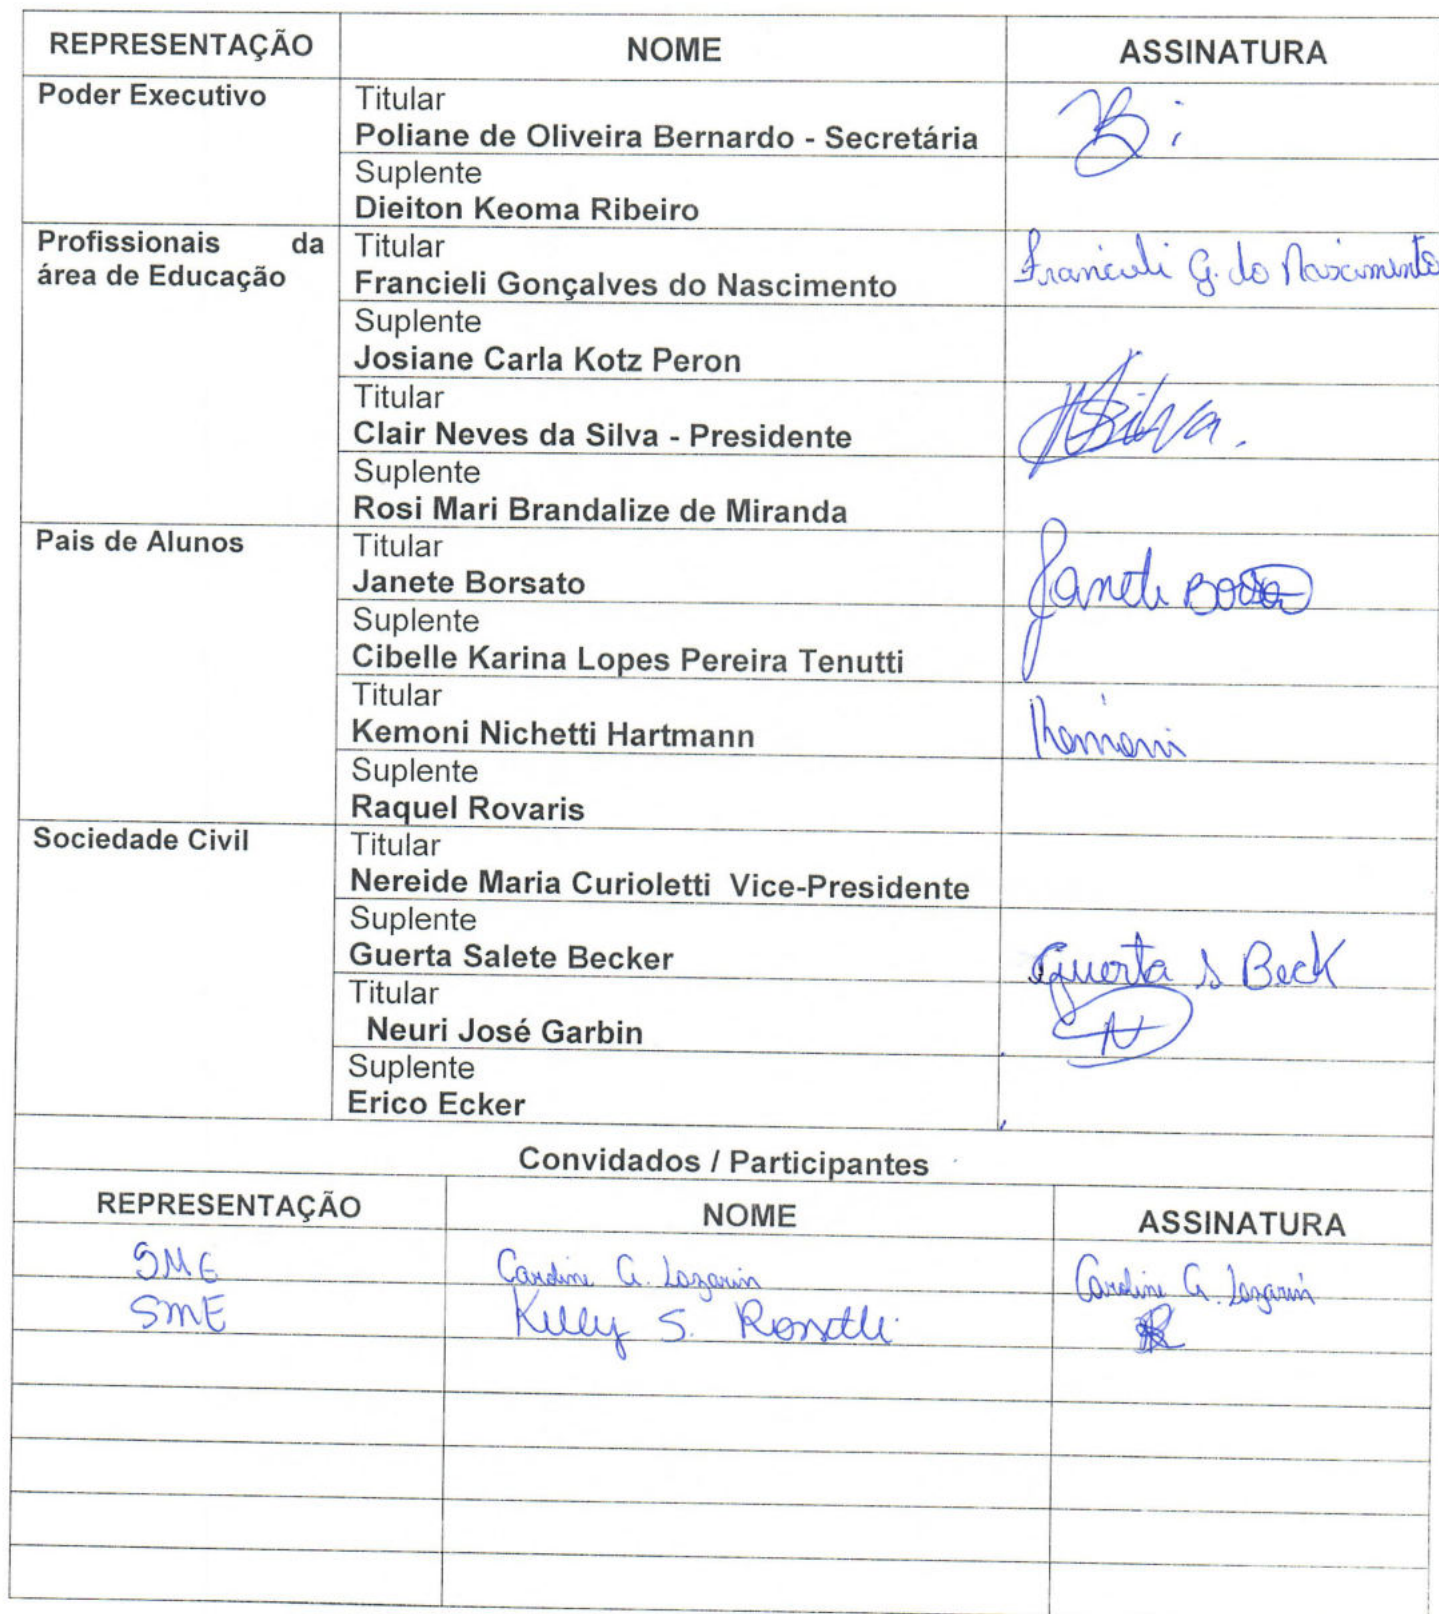 REPRESENTAÇÃO NOME ASSINATURA
Poder Executivo Titular
Poliane de Oliveira Bernardo - Secretária
Suplente
Dieiton Keoma Ribeiro
Profissionais da área de Educação Titular
Francieli Gonçalves do Nascimento Francieli G. do Nascimento
Suplente
Josiane Carla Kotz Peron
Titular
Clair Neves da Silva - Presidente Silva.
Suplente
Rosi Mari Brandalize de Miranda
Pais de Alunos Titular
Janete Borsato Janete
Suplente
Cibelle Karina Lopes Pereira Tenutti
Titular
Kemoni Nichetti Hartmann Kemoni
Suplente
Raquel Rovaris
Sociedade Civil Titular
Nereide Maria Curioletti Vice-Presidente
Suplente
Guerta Salete Becker Guerta S Beck
Titular
Neuri José Garbin N
Suplente
Erico Ecker
Convidados / Participantes
REPRESENTAÇÃO NOME ASSINATURA
SME Caroline G. Lazarin Caroline G. Lazarin
SME Kelly S.